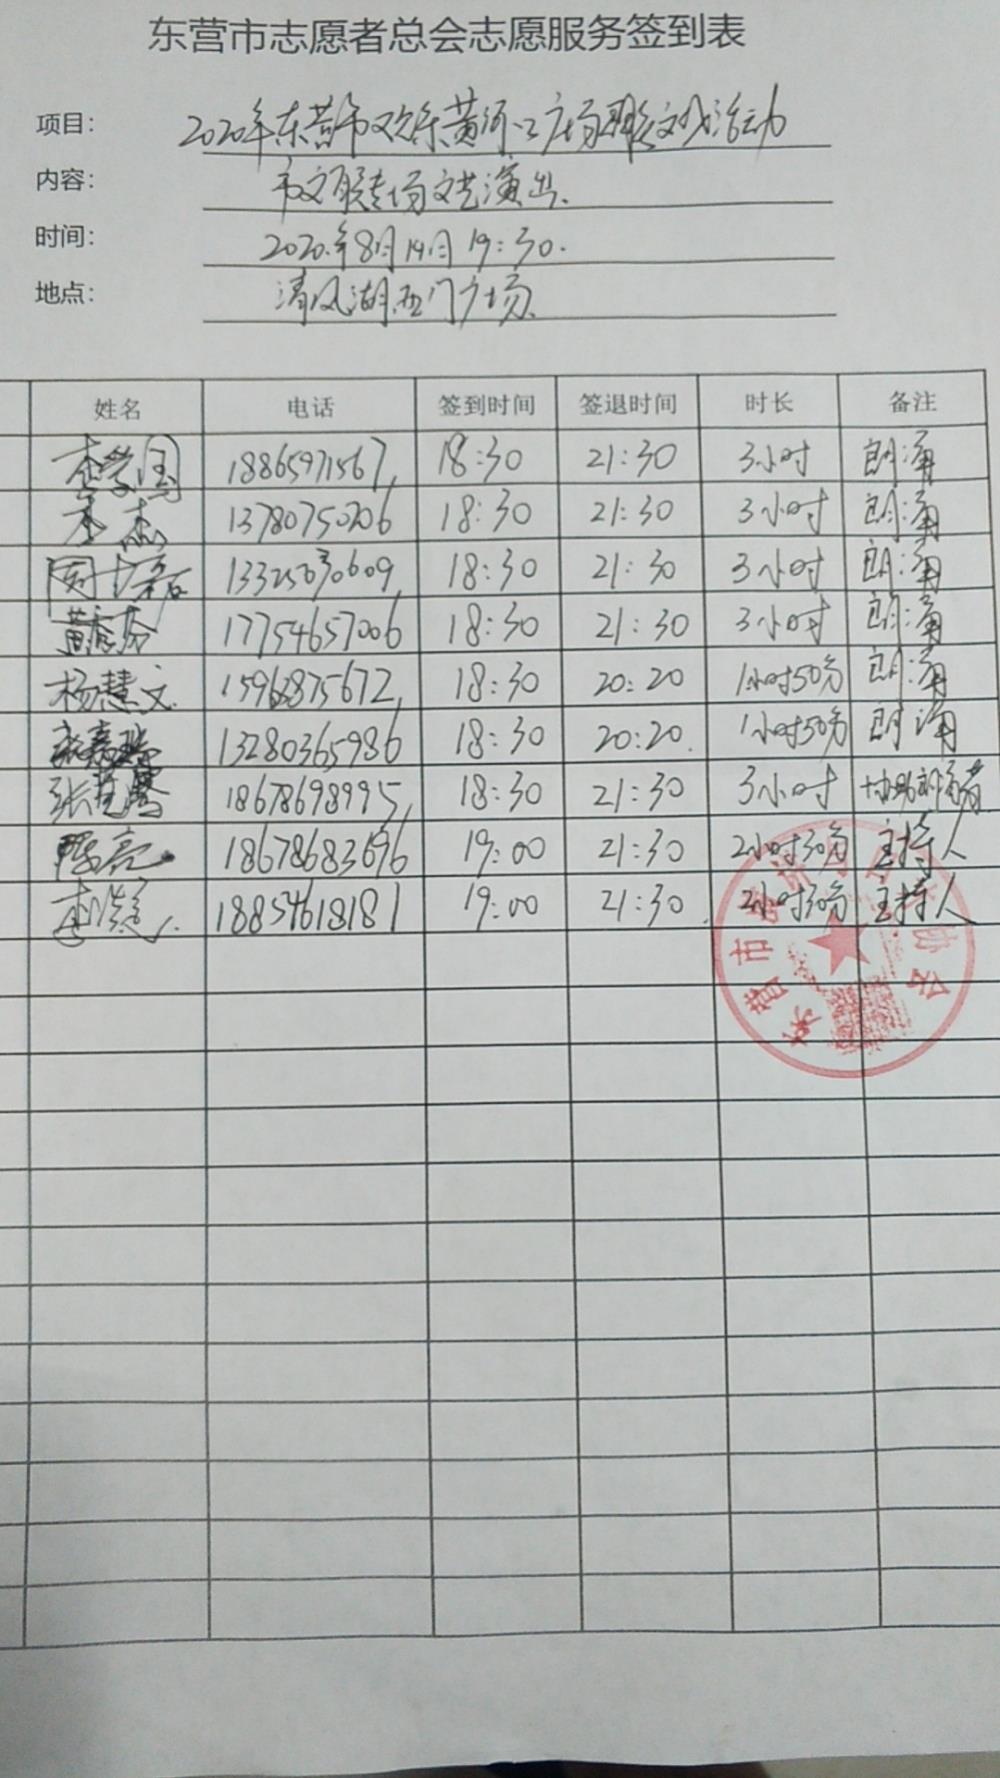 东营市志愿者总会志愿服务签到表
项目： 2020年东营市欢乐黄河口广场群众文化活动
内容： 市文联专场文艺演出.
时间： 2020.年8月14日 19:30.
地点： 清风湖西门广场.
姓名 电话 签到时间 签退时间 时长 备注
18865971567, 18:30 21:30 3小时 朗诵
李杰 13780750706 18:30 21:30 3小时 朗诵
18:30 21:30 3小时 朗诵
17754657006 18:30 21:30 3小时 朗诵
杨慧文 15962875672, 18:30 20:20 1小时50分 朗诵
13280365986 18:30 20:20. 1小时50分 朗诵
18678698995, 18:30 21:30 3小时 协助朗诵者
陈亮 18678683696 19:00 21:30 2小时30分 主持人
18854618181 19:00 21:30. 2小时30分 主持人
东营市 协会